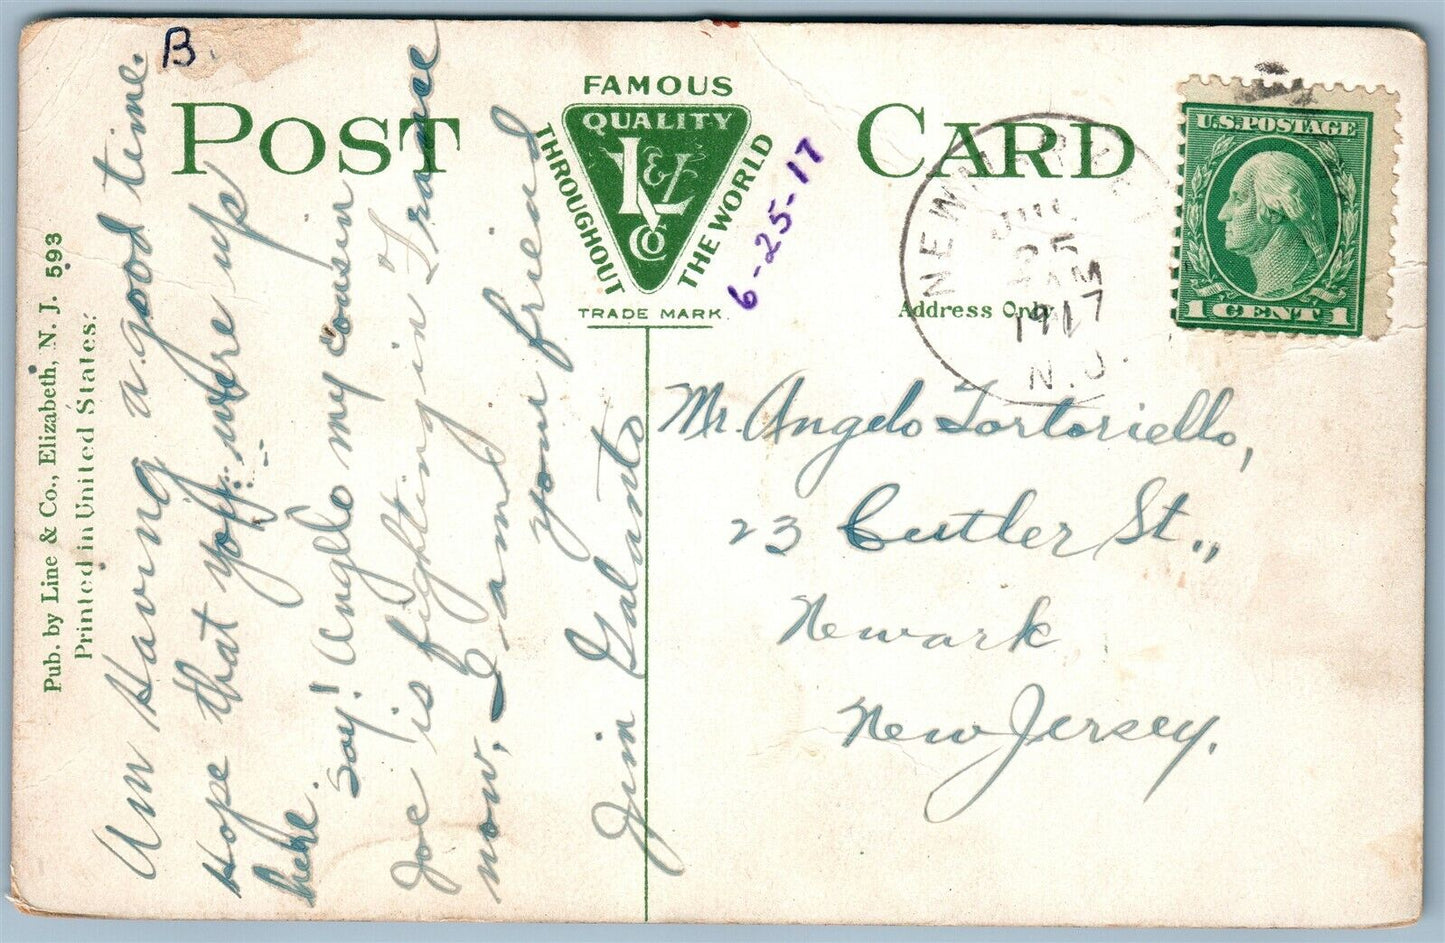 B.
POST CARD
FAMOUS
QUALITY
L&L
CO
THROUGHOUT
THE WORLD
TRADE MARK.
6-25-17
NEWMARKET
JUN
25
AM
1917
N.J.
U.S. POSTAGE
1 CENT 1
Address Only
Pub. by Line & Co., Elizabeth, N. J. 593
Printed in United States.
Am Having a good time.
Hope that you were up
here.
Say! Anglo my cousin
Joe is fighting in France
now, I am
your friend
Jim Galanto
Mr. Angelo Tortoriello,
23 Cutler St.,
Newark
New Jersey.